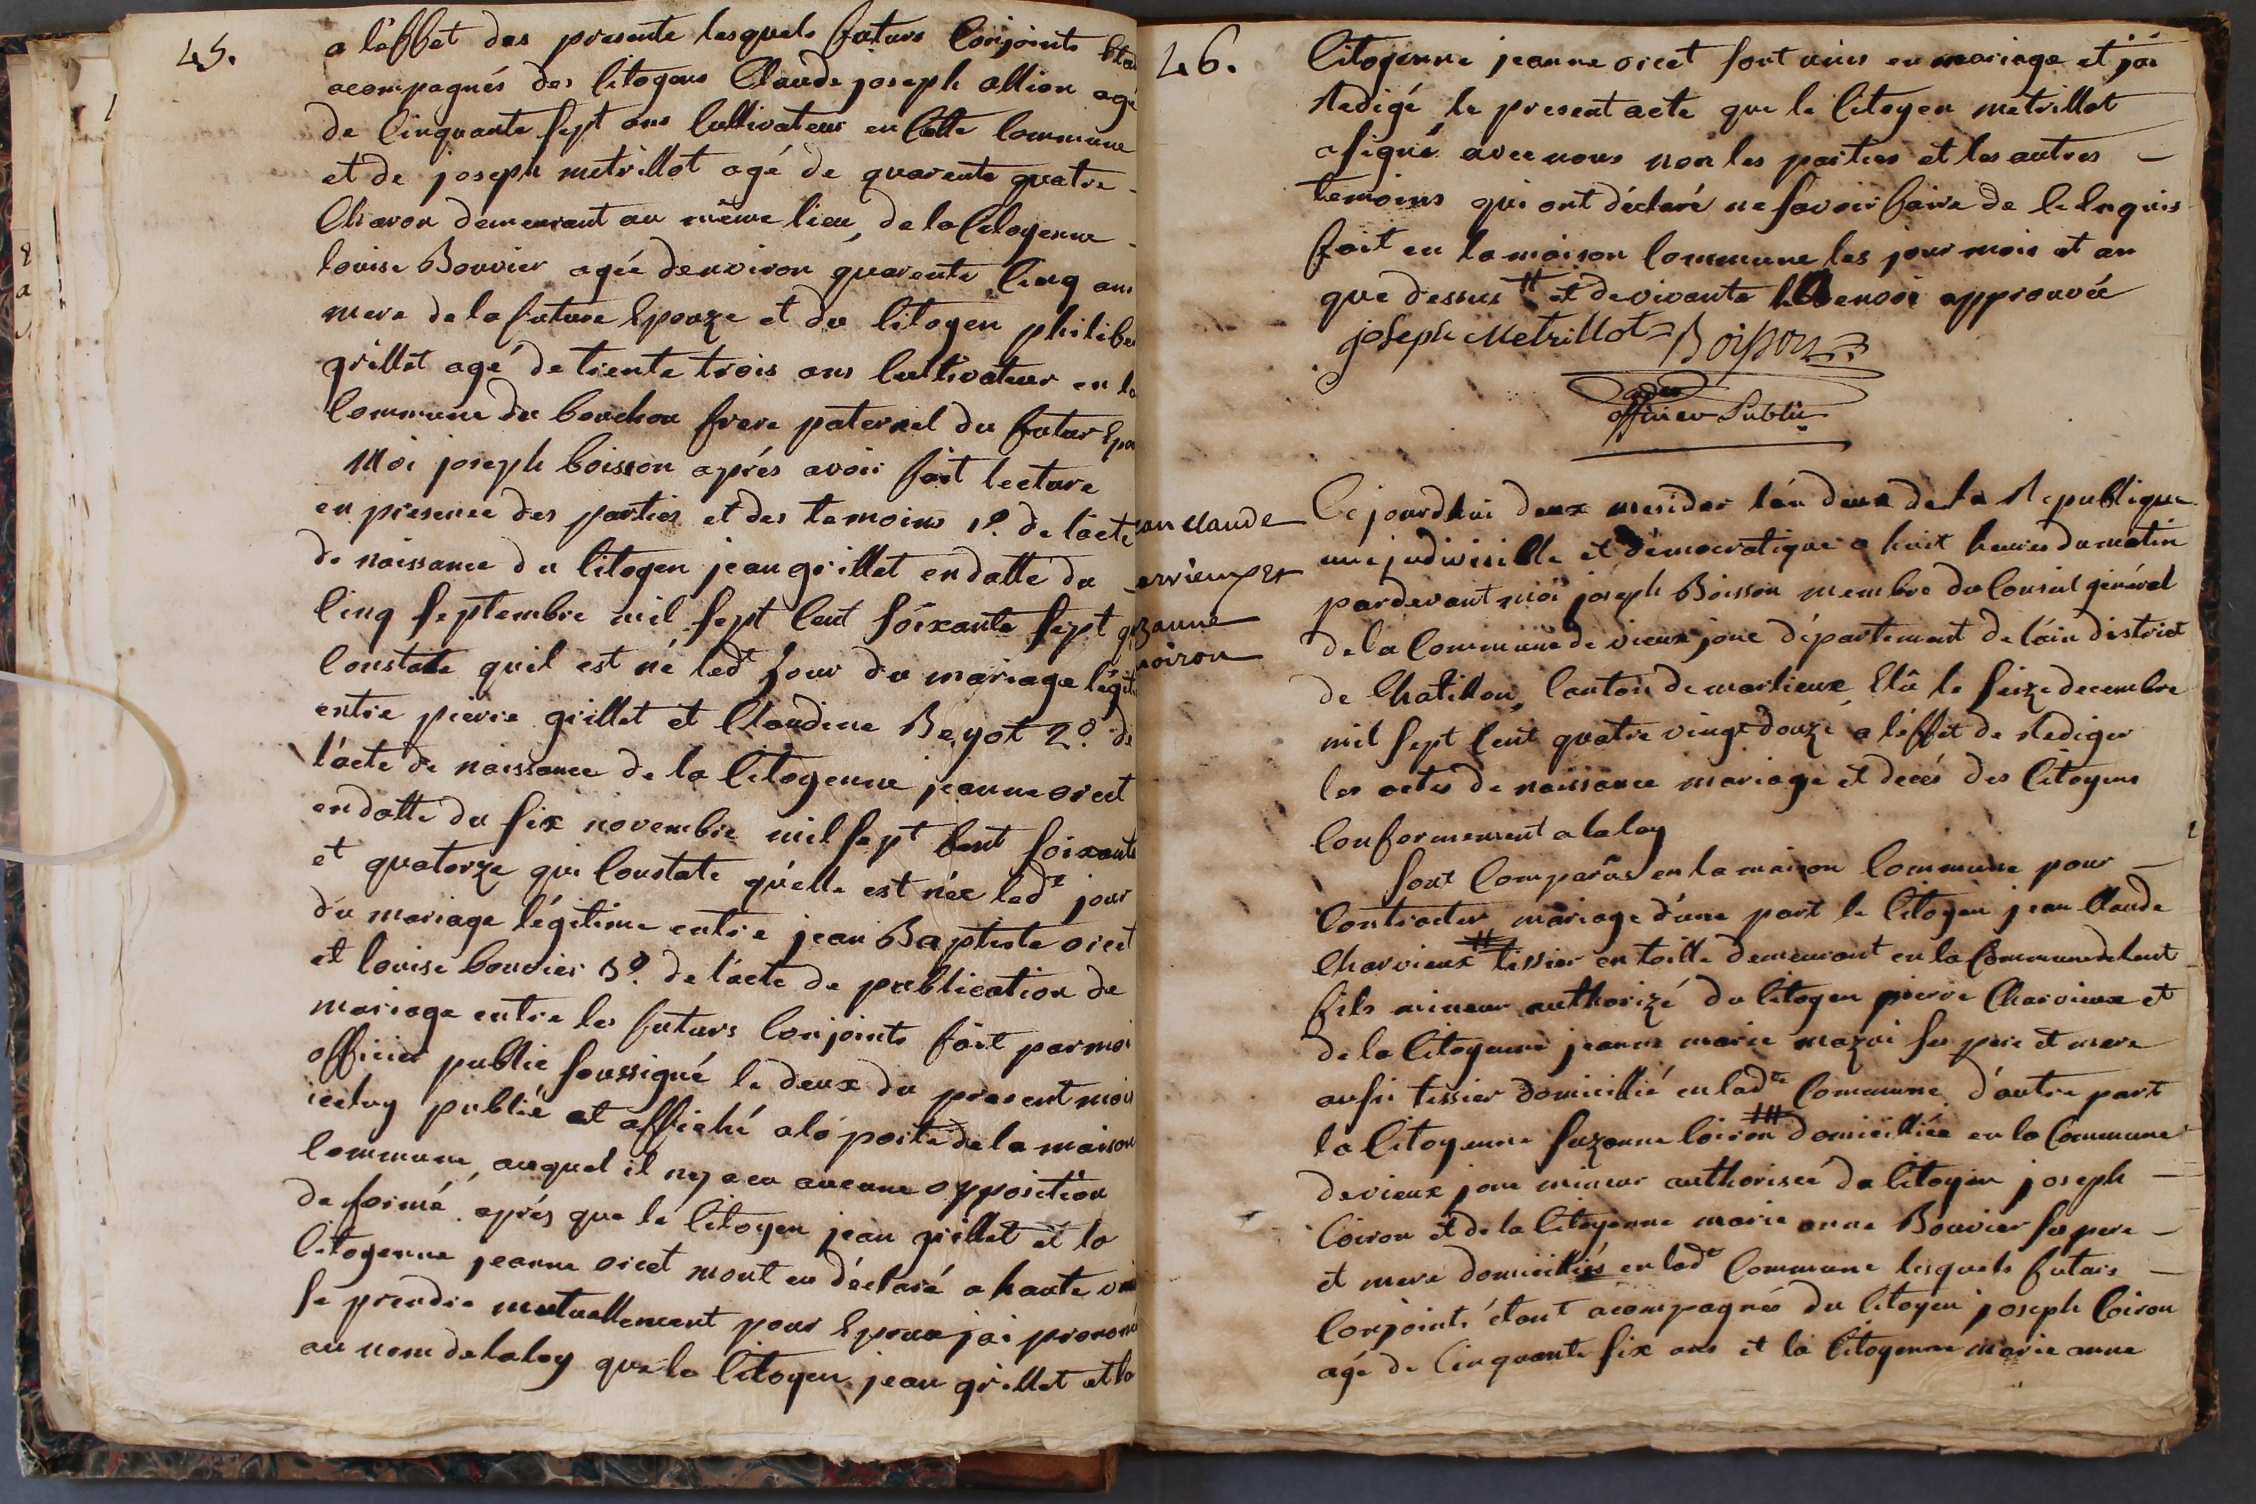 45.
a l'effet des presente lesquels futurs Conjoints étan
acompagnés des Citoyens Claude joseph allion agé
de Cinquante sept ans Cultivateur en Cette Commune
et de joseph metrillot agé de quarente quatre
Charon demeurant au même lieu, de la Citoyenne
louise Bouvier agée denviron quarente Cinq ans
mere de la future Epouze et du Citoyen philibe
grillet agé de trente trois ans Cultivateur en la
Commune du bouchou frere paternel du futur Epou
Moi joseph boisson aprés avoir fait lecture
en presence des parties et des temoins 1º. de l'acte
de naissance du Citoyen jean grillet en datte du
Cinq septembre mil sept Cent soixante sept q
Constate quil est né ledt jour du mariage légit
entre pierre grillet et Claudine Beyot 2º. de
l'acte de naissance de la Citoyenne jeanne oriet
en datte du six novembre mil sept Cent soixante
et quatorze qui Constate qu'elle est née ledt jour
du mariage légitime entre jean Baptiste oriet
et louise bouvier 3º. de l'acte de publication de
mariage entre les futurs Conjoints fait par moi
officier public soussigné le deux du present mois
iceluy publié et affiché a la porte de la maison
Commune, auquel il ny a eu aucune opposition
de formé. aprés que le Citoyen jean grillet et la
Citoyenne jeanne oriet mont eu déclaré a haute voi
se prendre mutuellement pour Epoux jai prononcé
au nom de la loy que le Citoyen jean grillet et la
46.
Citoyenne jeanne oriet sont unis en mariage et jai
Redigé le present acte que le Citoyen metrillot
a signé avec nous non les parties et les autres
temoins qui ont déclaré ne savoir faire de Ce Enquis
fait en la maison Commune les jour mois et an
que dessus # et devivante le renvoi approuvée
joseph Metrillot = Boisson
officier Public
Ce jourdhui deux mesidor l'an deux de la Republique
une indivisible et démocratique a huit heures du matin
pardevant moi joseph Boisson membre du Conseil général
de la Commune de vieux jonc département de l'ain district
de Chatillon, Canton de marlieux Elû le seize decembre
mil sept Cent quatre vingt douze a l'éffet de Rediger
les actes de naissance mariage et decés des Citoyens
Conformement a la loy
an Claude
arvieux et
zanne
oiron
sont Comparûs en la maison Commune pour
Contracter mariage d'une part le Citoyen jean Claude
Charvieux # tissier en toille demeurant en la Commune de lent
fils mineur authorizé du Citoyen pierre Charvieux et
de la Citoyenne jeanne marie mazoi ses pere et mere
ausi tessier domicillié en ladte Commune d'autre part
la Citoyenne suzanne Coiron # domicilliée en la Commune
de vieux jonc mineur authorisée du Citoyen joseph
Coiron et de la Citoyenne marie anne Bouvier ses pere
et mere domicilliés en ladte Commune lesquels futurs
Conjoints étant acompagnés du Citoyen joseph Coiron
agé de Cinquante six ans et la Citoyenne marie anne